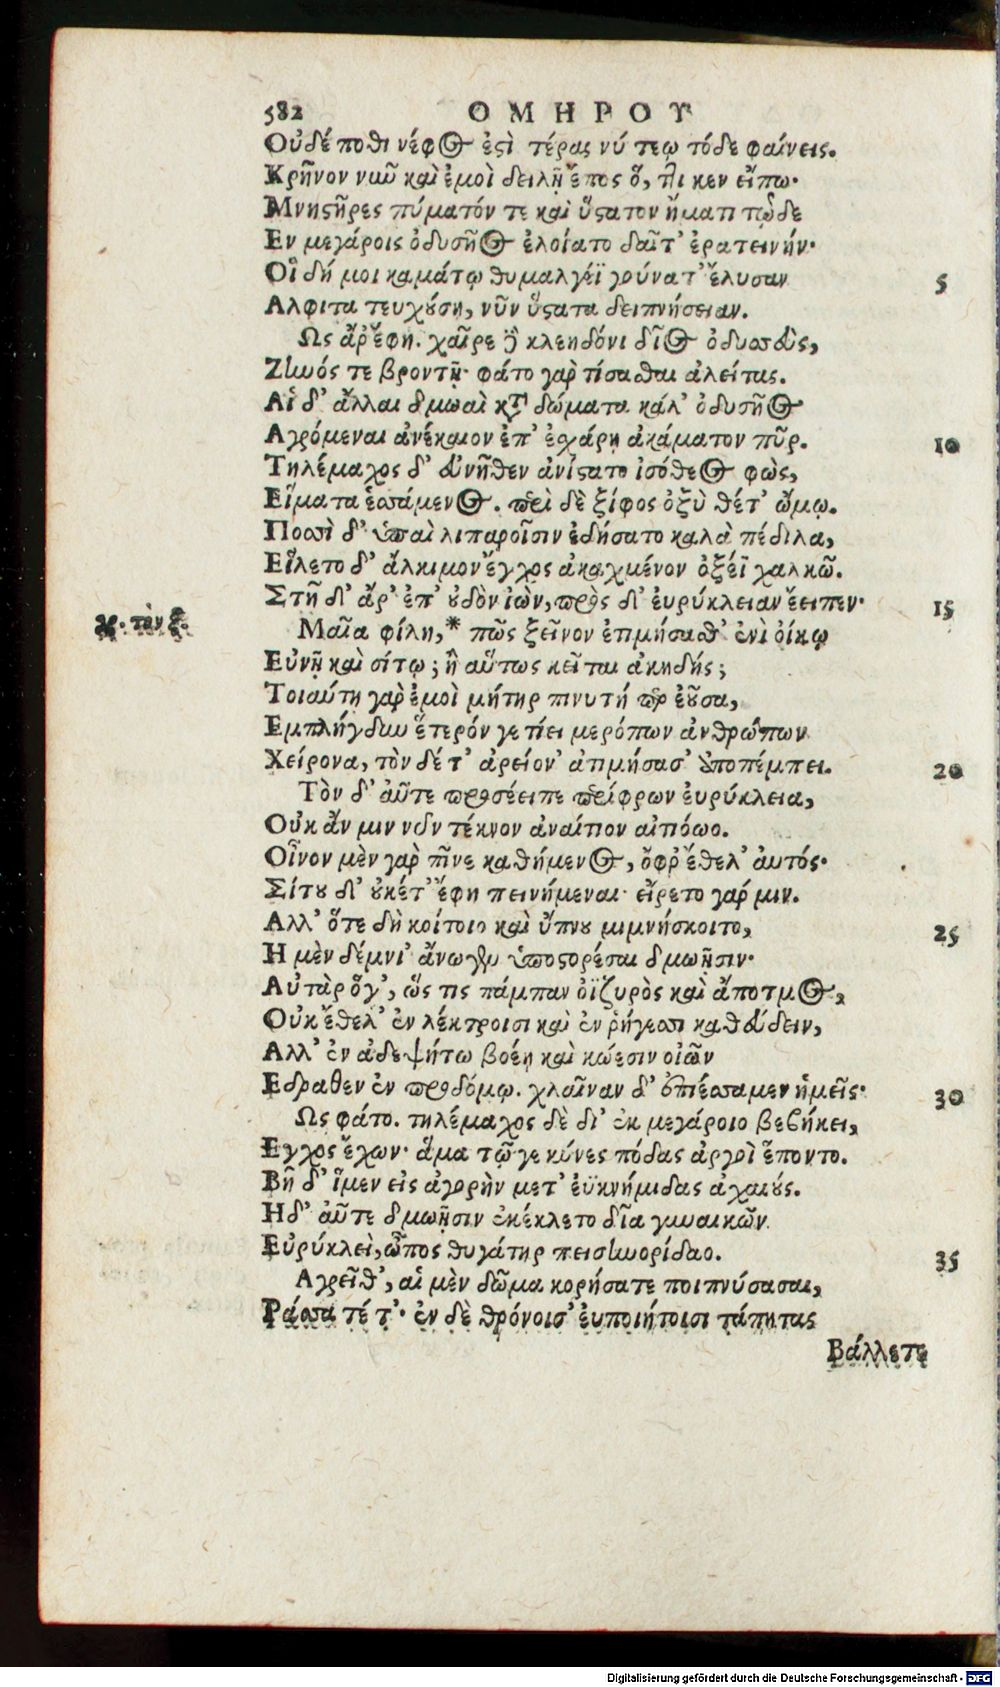 582 ΟΜΗΡΟΥ
Οὐδέ ποθι νέφος ἐςὶ τέρας νύ τεῳ τόδε φαίνεις.
Κρῆνον νιῦ καὶ ἐμοὶ δειλῇ ἔπος ὅ, ττι κεν εἴπω·
Μνηςῆρες πύματόν τε καὶ ὕςατον ἤματι τῷδε
Εν μεγάροις ὀδυσῆος ἑλοίατο δαῖτ' ἐρατεινήν·
Οἳ δή μοι καμάτῳ θυμαλγέϊ γούνατ' ἔλυσαν
5
Αλφιτα τευχούσῃ, νῦν ὕςατα δειπνήσειαν.
Ως ἄρ' ἔφη. χαῖρε δὲ κλεηδόνι δῖος ὀδυσσεὺς,
Ζηνός τε βροντῇ· φάτο γὰρ τίσασθαι ἀλείτας.
Αἱ δ' ἄλλαι δμωαὶ κατὰ δώματα κάλ' ὀδυσῆος
Αγρόμεναι ἀνέκαιον ἐπ' ἐσχάρῃ ἀκάματον πῦρ.
10
Τηλέμαχος δ' εὐνῆθεν ἀνίςατο ἰσόθεος φὼς,
Εἵματα ἑσσάμενος. περὶ δὲ ξίφος ὀξὺ θέτ' ὤμῳ.
Ποσσὶ δ' ὑπαὶ λιπαροῖσιν ἐδήσατο καλὰ πέδιλα,
Εἵλετο δ' ἄλκιμον ἔγχος ἀκαχμένον ὀξέϊ χαλκῶ.
Στῆ δ' ἄρ' ἐπ' οὐδὸν ἰὼν, πρὸς δ' ἐυρύκλειαν ἔειπεν·
15
Μαῖα φίλη,* πῶς ξεῖνον ἐτιμήσασθ' ἐνὶ οἴκῳ
Εὐνῇ καὶ σίτῳ; ἢ αὔτως κεῖται ἀκηδής;
Τοιαύτη γὰρ ἐμοὶ μήτηρ πινυτή περ ἐοῦσα,
Εμπλήγδην ἕτερόν γε τίει μερόπων ἀνθρώπων
Χείρονα, τὸν δέ τ' ἀρείον' ἀτιμήσασ' ἀποπέμπει.
20
Τὸν δ' αὖτε προσέειπε περίφρων ἐυρύκλεια,
Οὐκ ἄν μιν νῦν τέκνον ἀναίτιον αἰτιόῳο.
Οἶνον μὲν γὰρ πῖνε καθήμενος, ὄφρ' ἔθελ' ἀυτός·
Σίτου δ' οὐκέτ' ἔφη πεινήμεναι· εἴρετο γάρ μιν.
Αλλ' ὅτε δὴ κοίτοιο καὶ ὕπνου μιμνήσκοιτο,
25
Η μὲν δέμνι' ἄνωγεν ὑποςορέσαι δμωῇσιν·
Αὐτὰρ ὅγ', ὥς τις πάμπαν ὀϊζυρὸς καὶ ἄποτμος,
Οὐκ ἔθελ' ἐν λέκτροισι καὶ ἐν ῥήγεσσι καθεύδειν,
Αλλ' ἐν ἀδεψήτω βοέῃ καὶ κώεσιν οἰῶν
Εδραθεν ἐν προδόμῳ. χλαῖναν δ' ἐπιέσσαμεν ἡμεῖς·
30
Ως φάτο. τηλέμαχος δὲ δι' ἐκ μεγάροιο βεβήκει,
Εγχος ἔχων· ἅμα τῷγε κύνες πόδας ἀργοὶ ἕποντο.
Βῆ δ' ἴμεν εἰς ἀγορὴν μετ' ἐϋκνήμιδας ἀχαιούς.
Ηδ' αὖτε δμωῇσιν ἐκέκλετο δῖα γυναικῶν
Εὐρύκλει', ὦπος θυγάτηρ πεισηνορίδαο.
35
Αγρεῖθ', αἱ μὲν δῶμα κορήσατε ποιπνύσασαι,
Ράσσατέ τ'· ἐν δὲ θρόνοισ' ἐυποιήτοισι τάπητας
Βάλλετε
γρ. τὸν ξ.